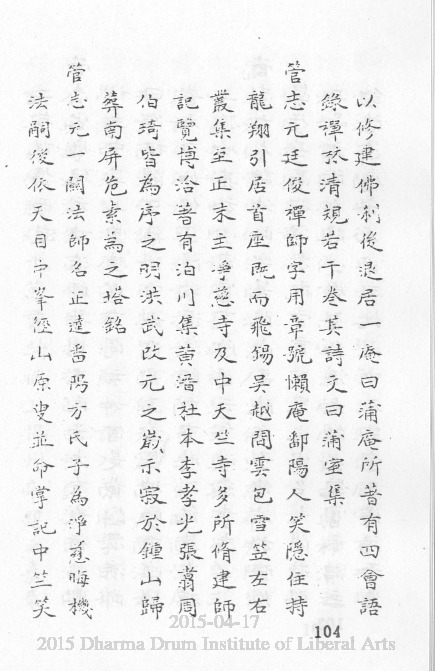 以修建佛刹後退居一庵曰蒲庵所著有四會語
錄禪林清規若干卷其詩文曰蒲室集
管志元廷俊禪師字用章號懶庵鄱陽人笑隱住持
龍翔引居首座既而飛錫吳越間雲包雪笠左右
叢集至正末主淨慈寺及中天竺寺多所脩建師
記覽博洽著有泊川集黃溍杜本李孝光張翥周
伯琦皆為序之明洪武改元之歲示寂於鍾山歸
葬南屏危素為之塔銘
管志元一關法師名正逵番陽方氏子為淨慈晦機
法嗣後依天目中峯徑山原叟並命掌記中竺笑
104
2015-04-17
2015 Dharma Drum Institute of Liberal Arts